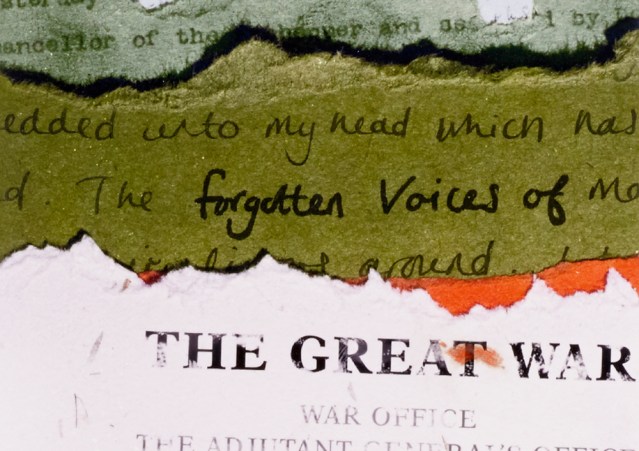 esterday
hancellor of the and by
edded into my head which has
d. The forgotten Voices of Me
around.
THE GREAT WAR
WAR OFFICE
THE ADJUTANT GENERAL'S OFFICE